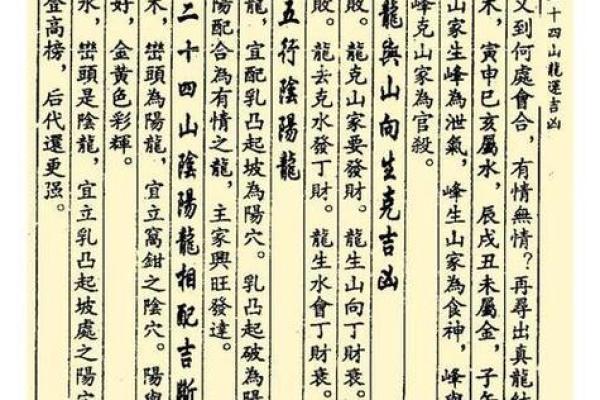 十四山龍運吉凶
又到何處會合，有情無情？再尋出真龍結
木，寅申巳亥屬水，辰戌丑未屬金，子午
山家生峰為泄氣，峰生山家為食神，峰與
峰克山家為官殺。
龍與山向生克吉凶
敗。龍克山家要發財。龍生山向丁財衰。
敗。龍去克水發丁財。龍生水會丁財衰。
五行陰陽龍
龍，宜配乳凸起坡為陽穴。乳凸起破為陽
陽配合為有情之龍，主家興旺發達。
二十四山陰陽龍相配吉斷
木，巒頭為陽龍，宜立窩鉗之陰穴。陽與
好，金黃色彩輝。
水，巒頭是陰龍，宜立乳凸起坡處之陽
登高榜，后代還更强。